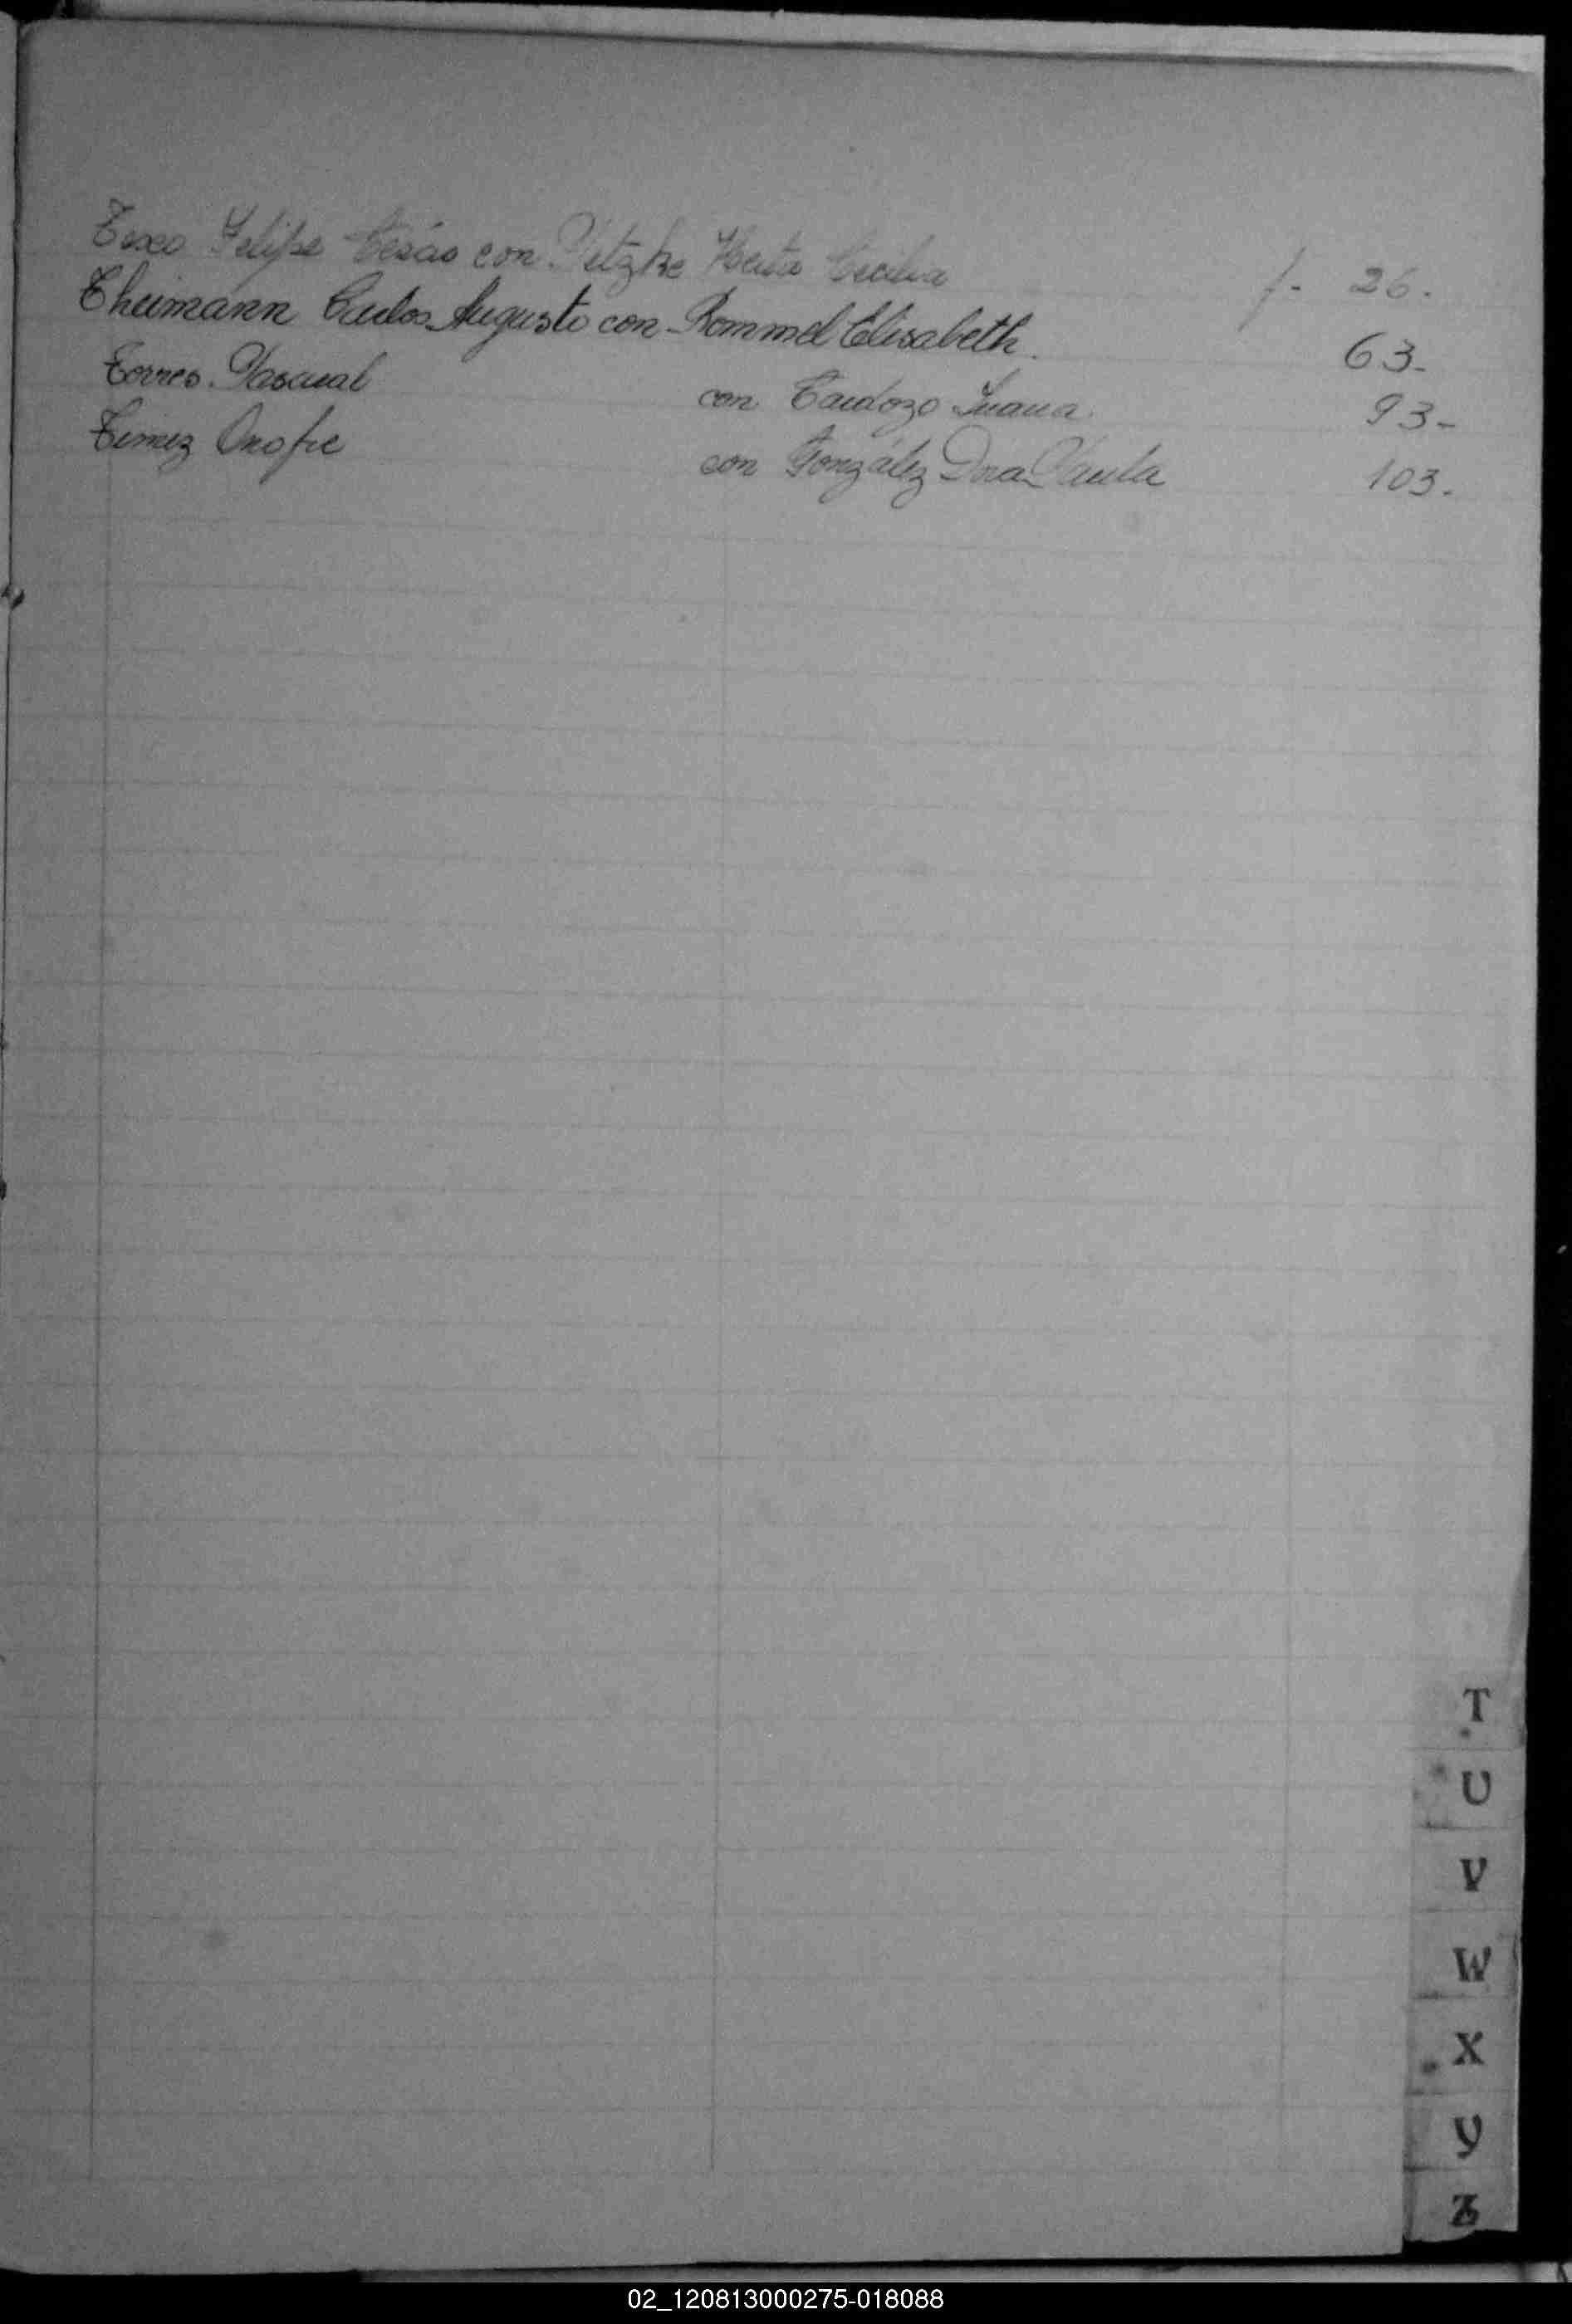 Texo Felipe Cesáo con Pietzke Herta Cecilia f. 26.
Theimann Carlos Augusto con Rommel Elisabeth. 63-
Torres Pascual con Cardozo Juana. 93-
Onofre con González Paula 103.
T
U
V
W
X
Y
Z
02_120813000275-018088